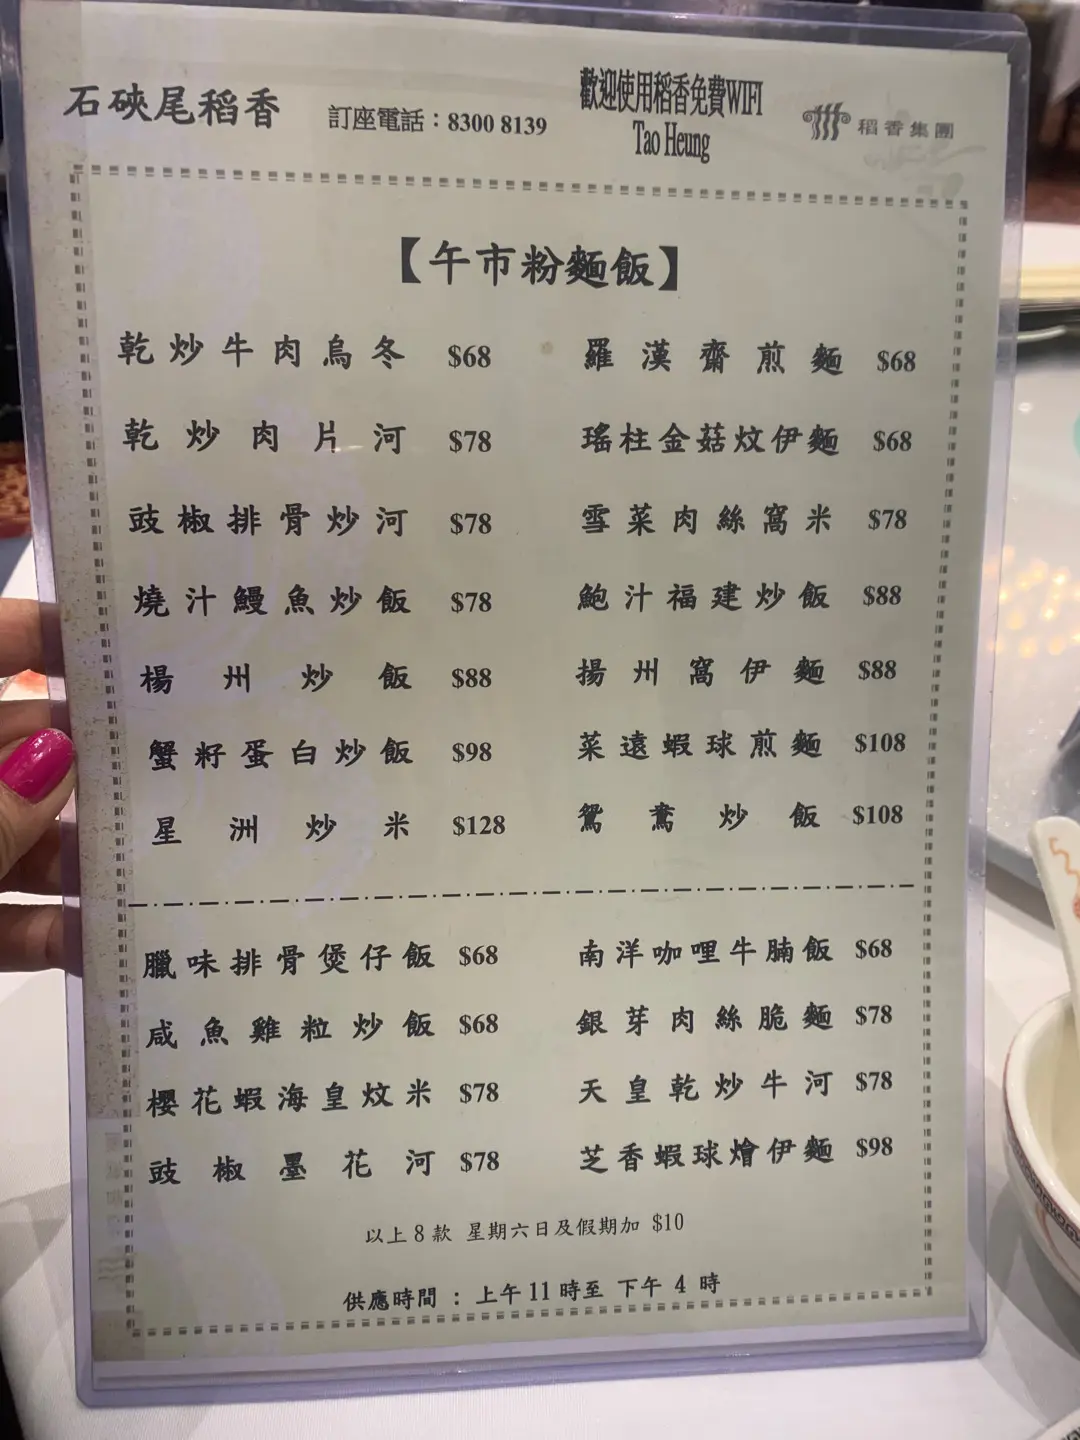 石硤尾稻香
訂座電話：8300 8139
歡迎使用稻香免費WIFI
Tao Heung
稻香集團
【午市粉麵飯】
乾炒牛肉烏冬 $68
羅漢齋煎麵 $68
乾炒肉片河 $78
瑤柱金菇炆伊麵 $68
豉椒排骨炒河 $78
雪菜肉絲窩米 $78
燒汁鰻魚炒飯 $78
鮑汁福建炒飯 $88
楊州炒飯 $88
揚州窩伊麵 $88
蟹籽蛋白炒飯 $98
菜遠蝦球煎麵 $108
星洲炒米 $128
鴛鴦炒飯 $108
臘味排骨煲仔飯 $68
南洋咖哩牛腩飯 $68
咸魚雞粒炒飯 $68
銀芽肉絲脆麵 $78
櫻花蝦海皇炆米 $78
天皇乾炒牛河 $78
豉椒墨花河 $78
芝香蝦球燴伊麵 $98
以上 8 款 星期六日及假期加 $10
供應時間 : 上午 11 時至 下午 4 時